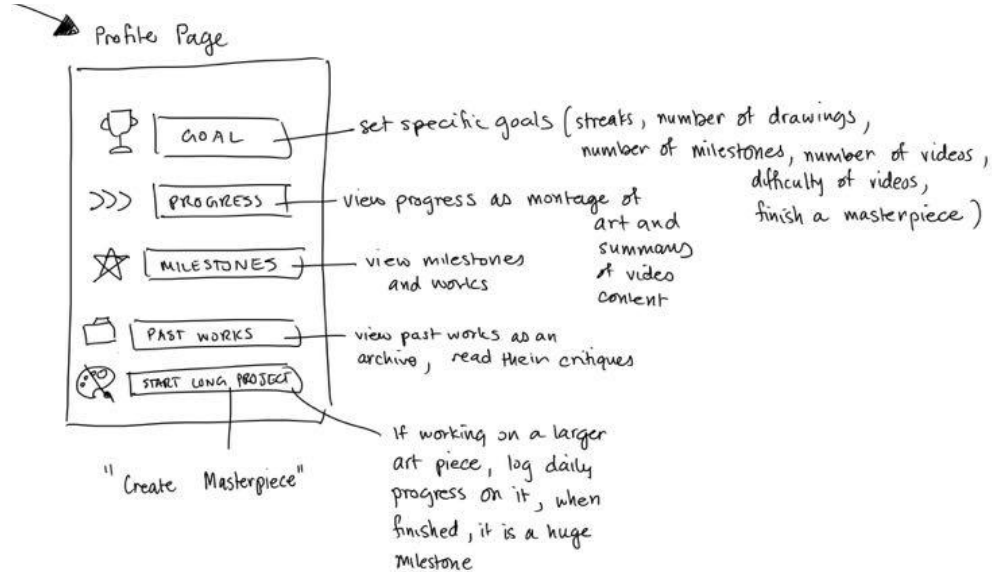 Profile Page
GOAL
set specific goals (streaks, number of drawings,
number of milestones, number of videos,
difficulty of videos,
finish a masterpiece)
PROGRESS
view progress as montage of
art and
summary
of video
content
MILESTONES
view milestones
and works
PAST WORKS
view past works as an
archive, read their critiques
START LONG PROJECT
"Create Masterpiece"
If working on a larger
art piece, log daily
progress on it, when
finished, it is a huge
milestone